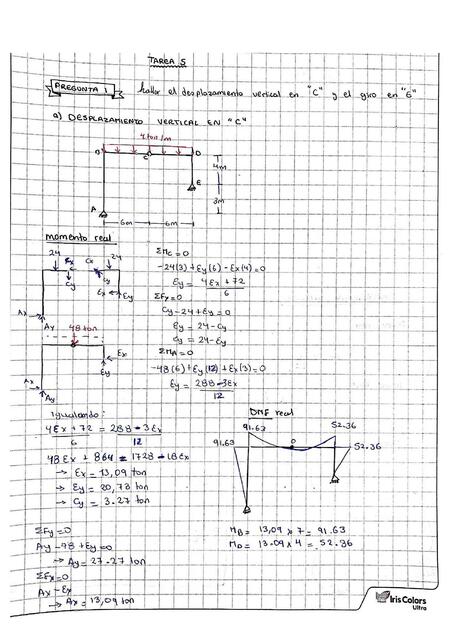 TAREA 5
PREGUNTA 1 Hallar el desplazamiento vertical en "C" y el giro en "E"
a) DESPLAZAMIENTO VERTICAL EN "C"
4 ton/m
B C D
4m
E
3m
A
6m 6m
momento real
24 Ex Cx 24
Cy Ey
Ex Ey
Ax
Ay 48 ton
Ex
Ey
Ax
Ay
ΣMc=0
-24(3)+Ey(6)-Ex(4)=0
Ey = 4Ex+72
6
ΣFx=0
Cy-24+Ey=0
Ey = 24-Cy
Cy = 24-Ey
ΣMA=0
-48(6)+Ey(12)+Ex(3)=0
Ey = 288-3Ex
12
Igualando:
4Ex+72 = 288-3Ex
6 12
48Ex + 864 = 1728-18Ex
→ Ex = 13,09 ton
→ Ey = 20,73 ton
→ Cy = 3.27 ton
DMF real
91.63 52.36
91.63 52.36
ΣFy=0
Ay-48+Ey=0
→ Ay = 27.27 ton
ΣFx=0
Ax-Ex
→ Ax = 13,09 ton
MB = 13,09 * 7 = 91.63
MD = 13.09 * 4 = 52.36
IrisColors
Ultra